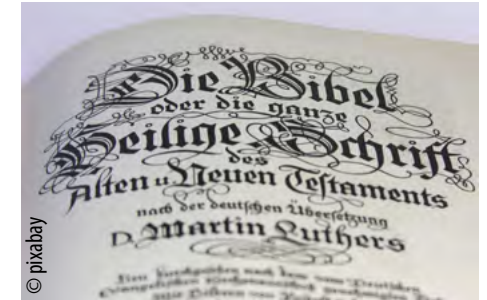 Die Bibel
oder die ganze
Heilige Schrift
des
Alten u. Neuen Testaments
nach der deutschen Übersetzung
D. Martin Luthers
© pixabay